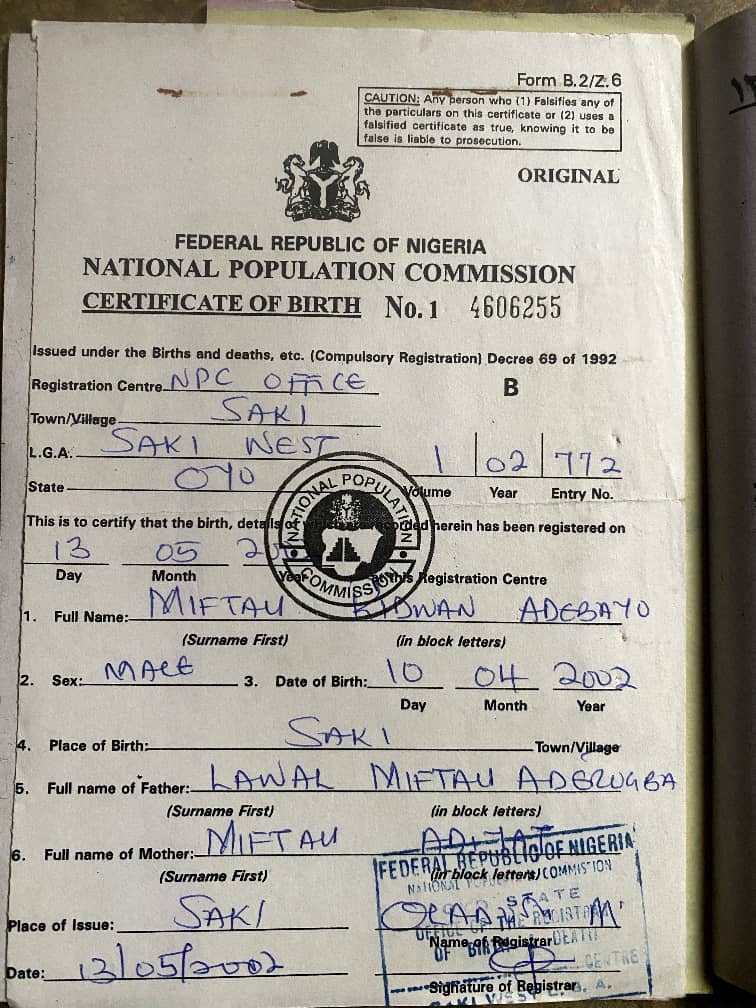 Form B.2/Z.6
CAUTION: Any person who (1) Falsifies any of
the particulars on this certificate or (2) uses a
falsified certificate as true, knowing it to be
false is liable to prosecution.
ORIGINAL
FEDERAL REPUBLIC OF NIGERIA
NATIONAL POPULATION COMMISSION
CERTIFICATE OF BIRTH No. 1 4606255
Issued under the Births and deaths, etc. (Compulsory Registration) Decree 69 of 1992
Registration Centre NPC OFFICE B
Town/Village SAKI
L.G.A. SAKI WEST 1 02 772
State OYO Volume Year Entry No.
NATIONAL POPULATION COMMISSION
This is to certify that the birth, details of which are recorded herein has been registered on
13 05
Day Month Year at this Registration Centre
1. Full Name: MIFTAU RIDWAN ADEBAYO
(Surname First) (in block letters)
2. Sex: MALE 3. Date of Birth: 10 04 2002
Day Month Year
4. Place of Birth: SAKI Town/Village
5. Full name of Father: LAWAL MIFTAU ADERUGBA
(Surname First) (in block letters)
6. Full name of Mother: MIFTAU
(Surname First) (in block letters)
FEDERAL REPUBLIC OF NIGERIA
NATIONAL POPULATION COMMISSION
STATE
OFFICE OF THE REGISTRAR
OF BIRTH DEATH
CENTRE
SAKI WEST L. G. A.
Place of Issue: SAKI
Name of Registrar
Date: 13/05/2002
Signature of Registrar